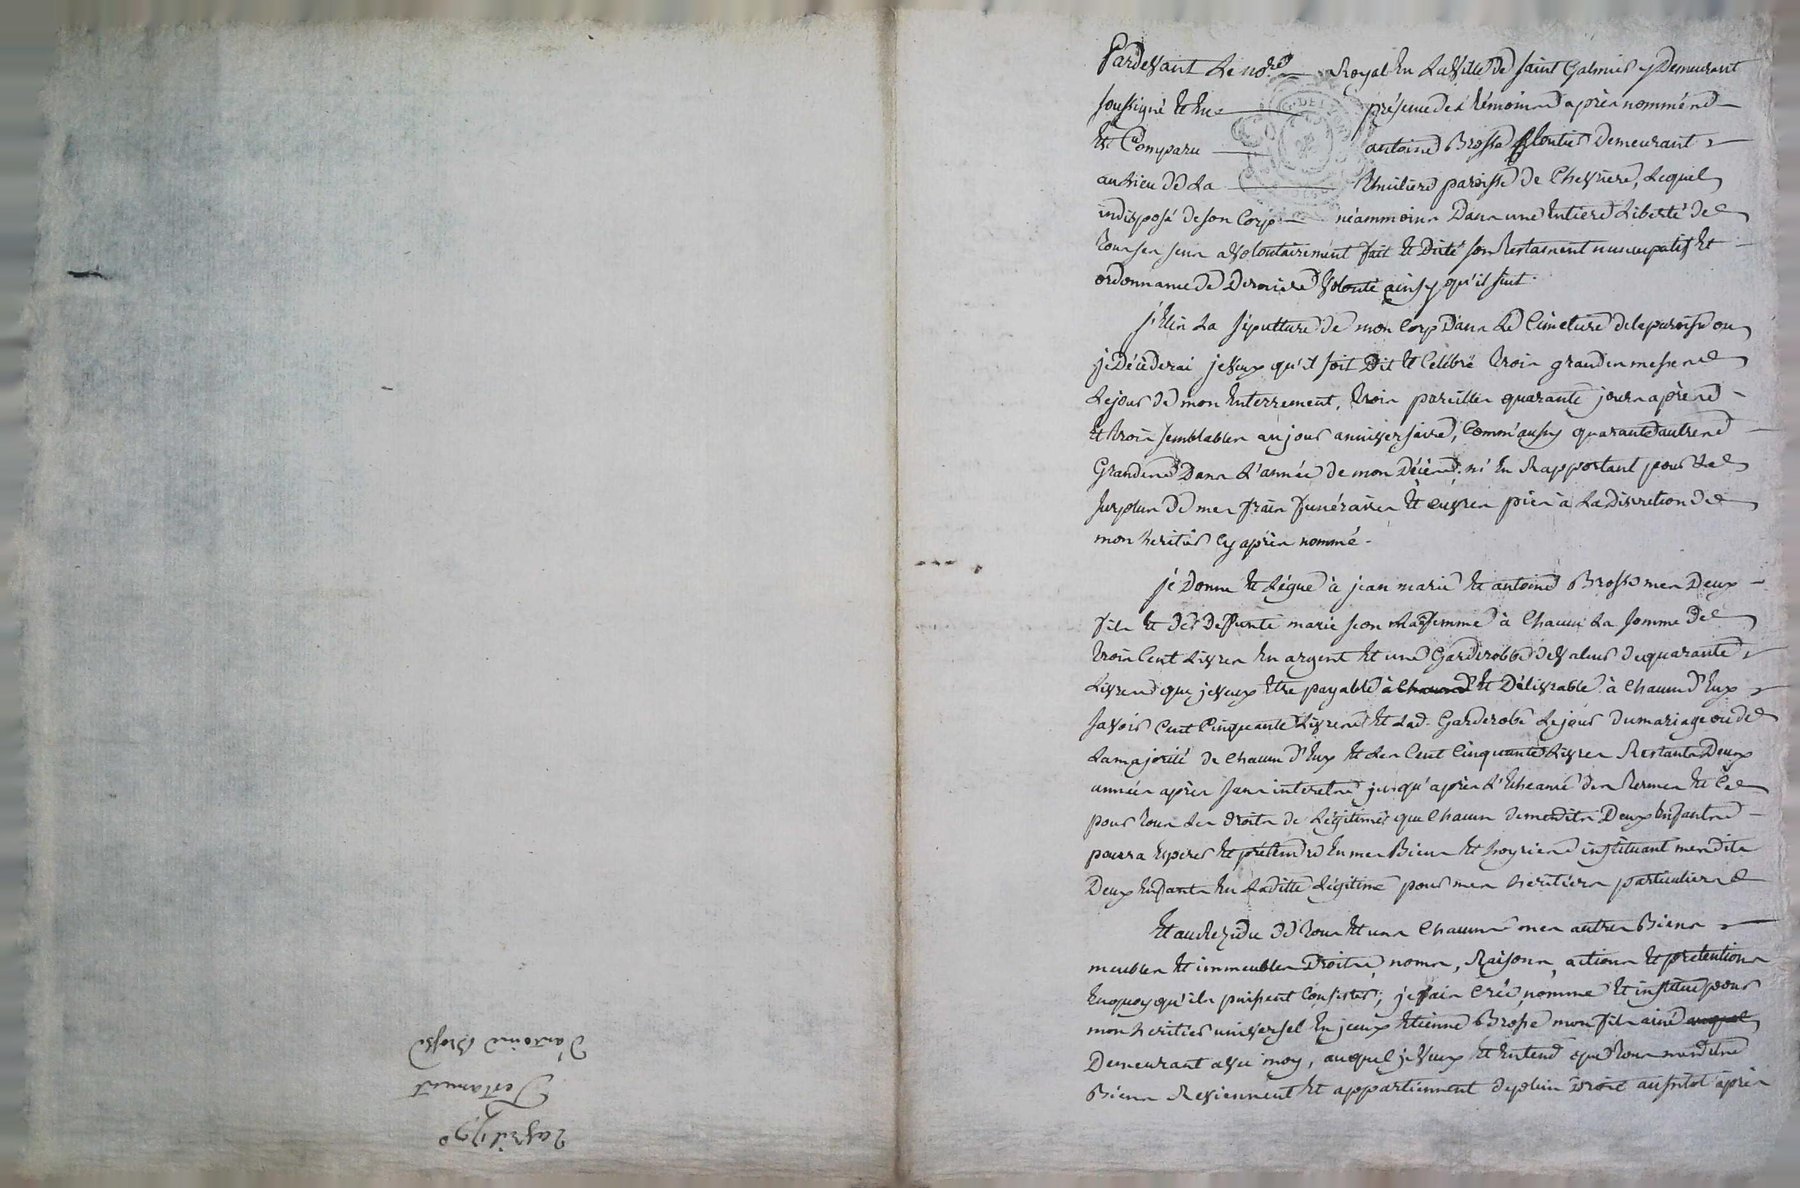 Pardevant Le no.re Royal En La Ville de Saint Galmier y Demeurant
soussigné Et En présence des témoins après nommés
Et Comparu antoine Brosse Demeurant
au Lieu de La thuiliere paroisse de Chevriere, Lequel
indisposé de son Corp néammoins Dans une Entiere Liberté de
tous ses sens a volontairement fait Et Dicté son Testament nuncupatif Et
ordonnance de Derniere Volonté ainsy qu'il suit.
j'Elis La sépulture de mon Corp Dans Le Cimetiere de la paroisse ou
je Décéderai je veux qu'il soit Dit Et Célébré trois grandes messes
Le jour de mon Enterrement, trois pareilles quarante jours après
Et trois semblables au jour anniversaire, Comm'aussy quarante autres
Grandes Dans L'année de mon Décès. m'En Rapportant pour Le
surplus de mes frais funéraires Et euvres pies à La Discretion de
mon heritier Cy après nommé.
je Donne Et Légue à jean marie Et antoine Brosse mes Deux
fils Et de Deffunte marie femme à Chacun La somme de
trois Cent Livres En argent Et une Garderobbe de valeur de quarante
Livres que je veux Etre payable à Chacun Et Délivrable à Chacun d'Eux
savoir Cent Cinquante Livres Et Lad. Garderobe Le jour du mariage ou de
La majorité de Chacun d'Eux Et Les Cent Cinquante Livres Restants Deux
années après sans interets jusqu'après L'Echeance des termes Et Ce
pour tous Les droits de Légitime que Chacun de mesdits Deux Enfants
pourra Espérer Et prétendre En mes Biens Et hoyrie instituant mesdits
Deux Enfants En Laditte Légitime pour mes heritiers particuliers
Et au Rezidu de tous Et uns Chacuns mes autres Biens
meubles Et immeubles Droits, noms, Raisons, actions Et prétentions
En quoy qu'ils puissent Consister; je fais Crée, nomme Et institue pour
mon heritier universel En jceux Etienne Brosse mon fils ainé auquel
Demeurant avec moy, auquel je veux Et Entend que tous mesdits
Biens Reviennent Et appartiennent de plein Droit aussitot après
2 avril 1790
Testament
d'antoine Brosse